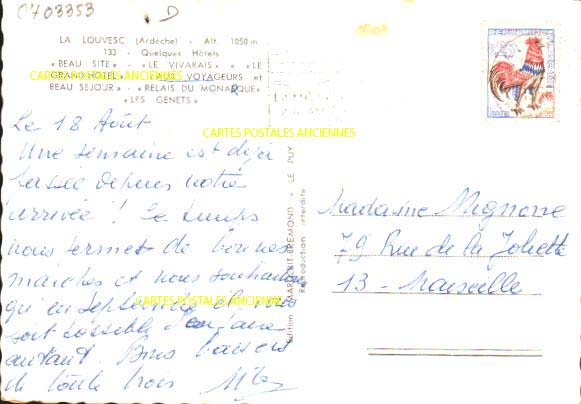 0703353 D
LA LOUVESC (Ardèche) - Alt. 1050 m.
133 - Quelques Hôtels
"BEAU SITE" - "LE VIVARAIS" - "LE
GRAND HOTEL" - DES VOYAGEURS et
BEAU SEJOUR" - "RELAIS DU MONARQUE"
"LES GENETS"
CARTES POSTALES ANCIENNES
CARTES POSTALES ANCIENNES
Le 18 Août
Une semaine est déjà
passée depuis notre
arrivée ! Le temps
nous permet de bonnes
marches et nous souhaitons
qu'en septembre il vous
soit possible d'en faire
autant. Bons baisers
de toute trois
CARTES POSTALES ANCIENNES
Edition MARGERIT-BREMOND - LE PUY
Reproduction interdite
Madame Mignonne
79 Rue de la Joliette
13 - Marseille